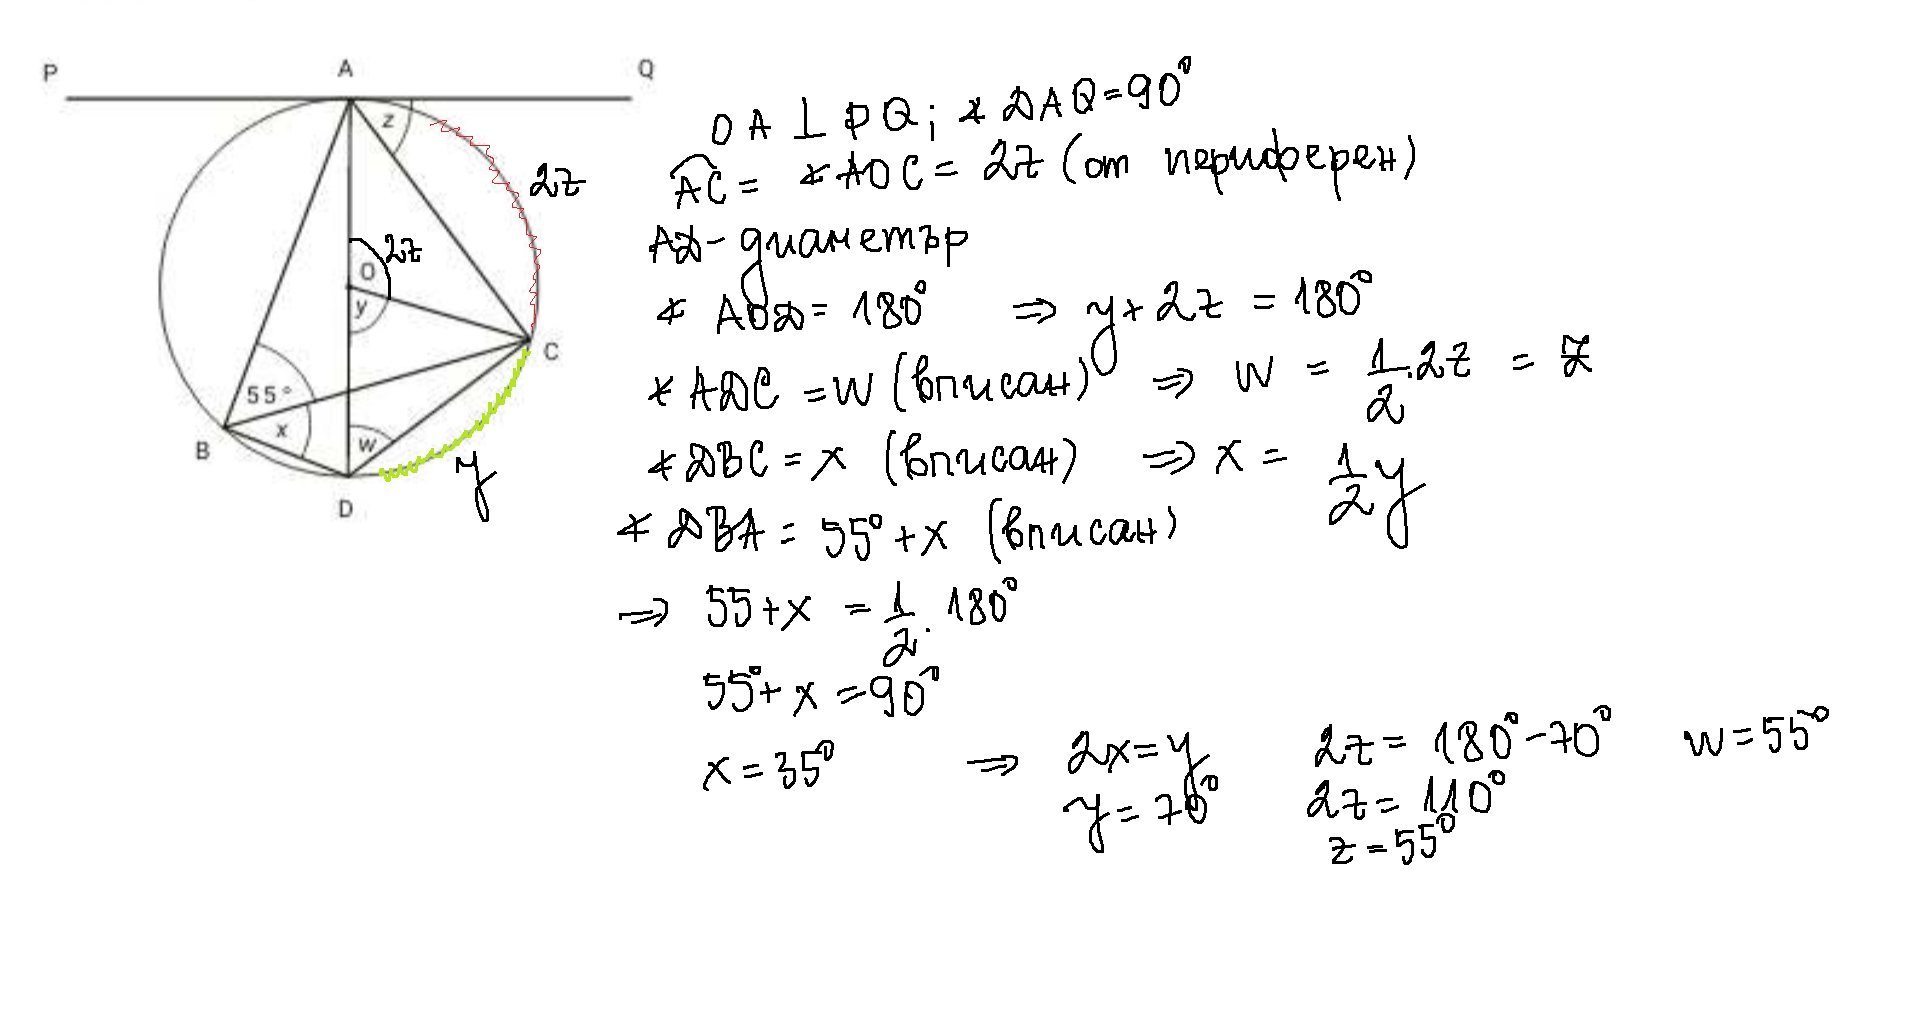 P A Q
z
2z
2z
O
y
C
55°
x
w
B
y
D
OA ⊥ PQ; ∢ DAQ = 90°
AC = ∢ AOC = 2z (от периферен)
AD - диаметър
∢ AOD = 180° ⇒ y + 2z = 180°
∢ ADC = w (вписан) ⇒ w = 1/2 . 2z = z
∢ DBC = x (вписан) ⇒ x = 1/2 y
∢ DBA = 55° + x (вписан)
⇒ 55 + x = 1/2 . 180°
55° + x = 90°
x = 35° ⇒ 2x = y 2z = 180° - 70° w = 55°
y = 70° 2z = 110°
z = 55°